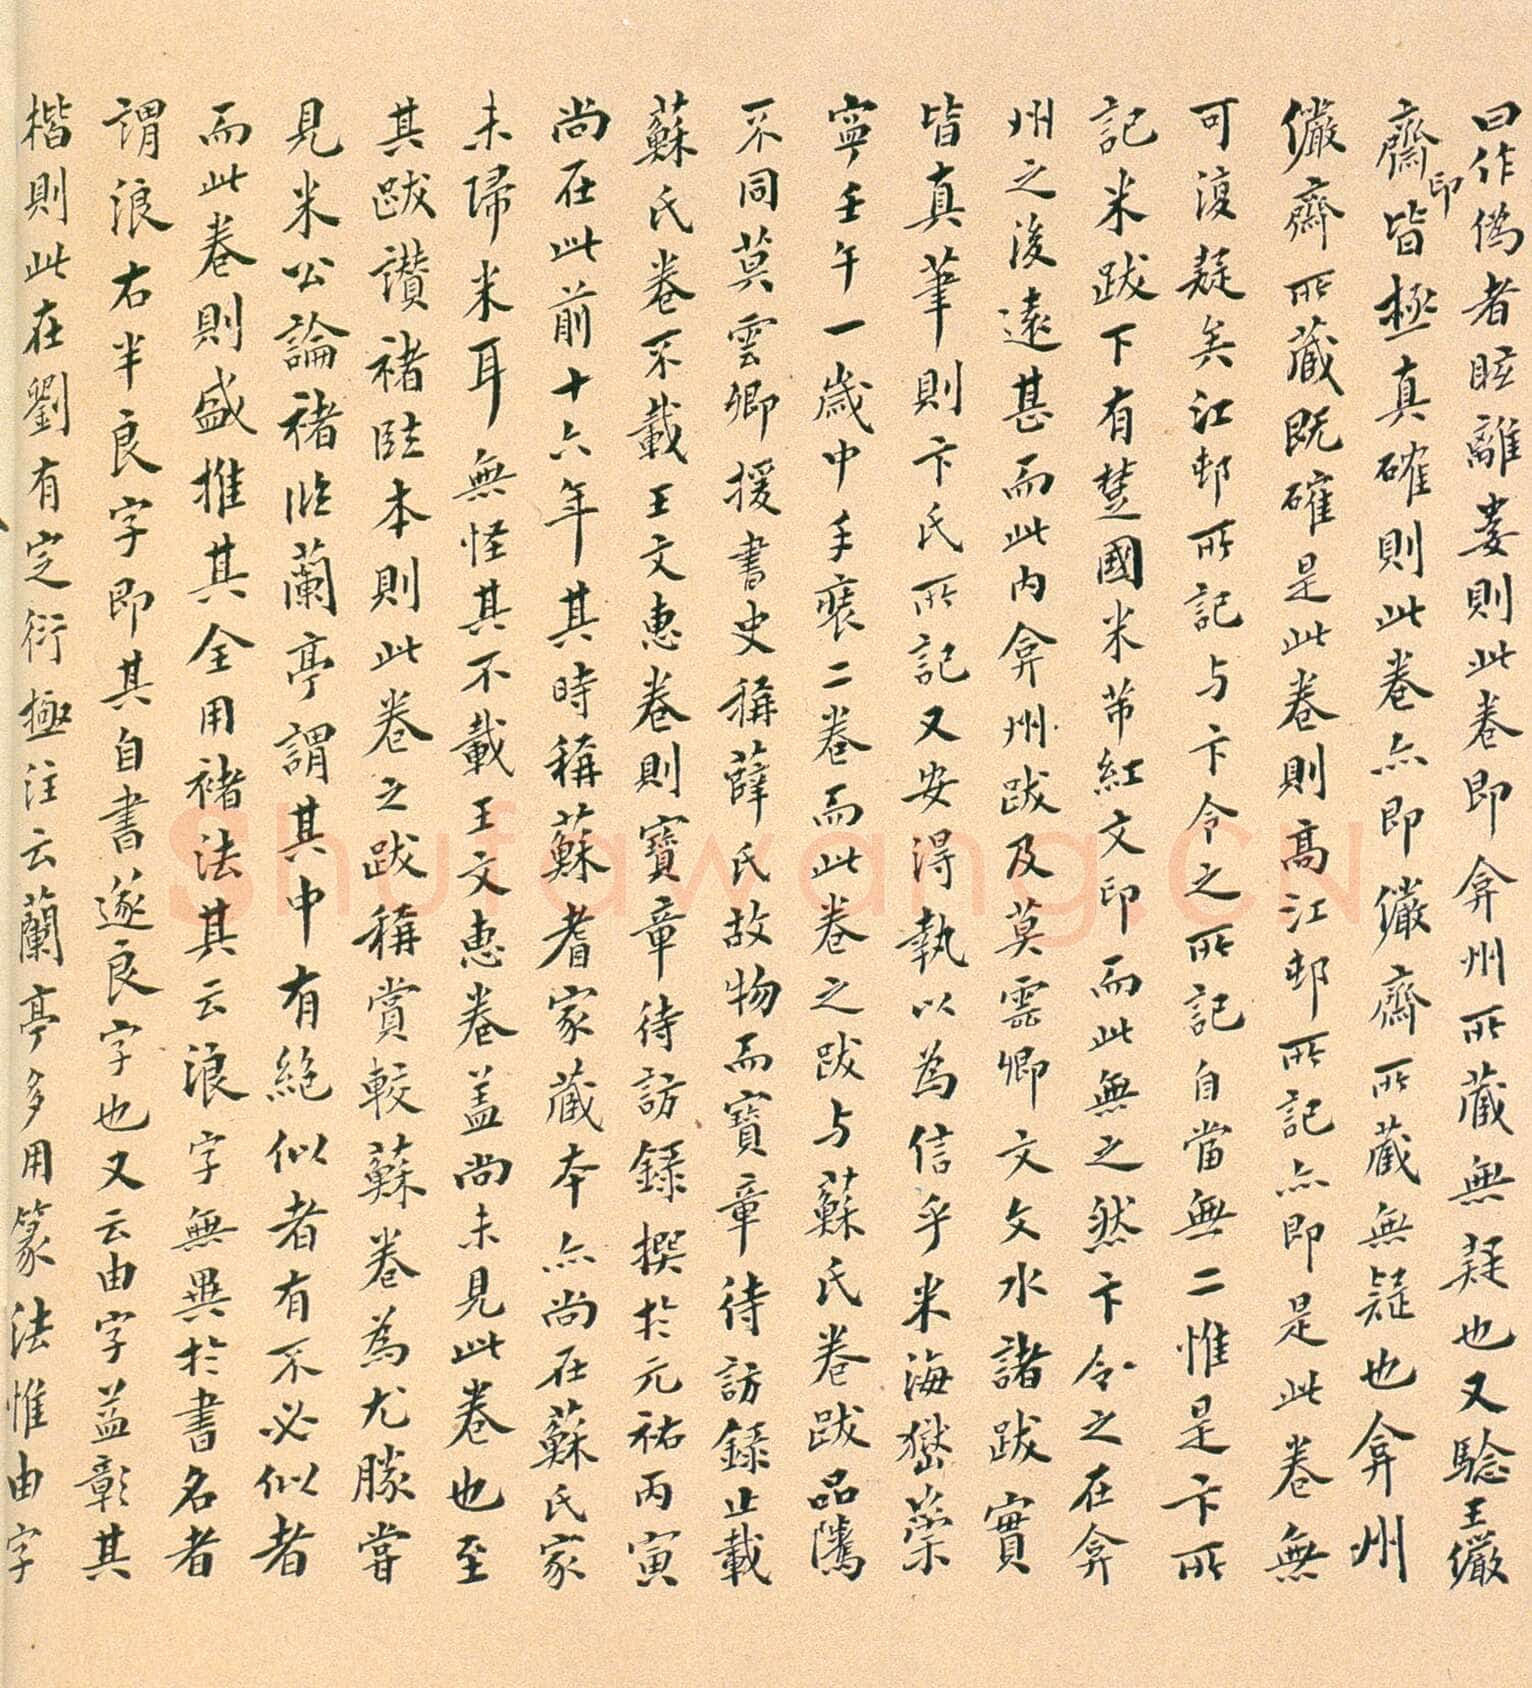 曰作偽者眩離婁則此卷即弇州所藏無疑也又驗王儼
齋印皆極真確則此卷亦即儼齋所藏無疑也弇州
儼齋所藏既確是此卷則高江邨所記亦即是此卷無
可復疑矣江邨所記与卞令之所記自當無二惟是卞所
記米跋下有楚國米芾紅文印而此無之然卞令之在弇
州之後遠甚而此內弇州跋及莫雲卿文文水諸跋實
皆真筆則卞氏所記又安得執以為信乎米海嶽崇
寧壬午一歲中手裝二卷而此卷之跋与蘇氏卷跋品隲
不同莫雲卿援書史稱薛氏故物而寶章待訪錄止載
蘇氏卷不載王文惠卷則寶章待訪錄撰於元祐丙寅
尚在此前十六年其時稱蘇耆家藏本亦尚在蘇氏家
未歸米耳無怪其不載王文惠卷蓋尚未見此卷也至
其跋讚褚臨本則此卷之跋稱賞較蘇卷為尤勝嘗
見米公論褚臨蘭亭謂其中有絕似者有不必似者
而此卷則盛推其全用褚法其云浪字無異於書名者
謂浪右半良字即其自書遂良字也又云由字益彰其
楷則此在劉有定衍極注云蘭亭多用篆法惟由字
Shufawang.CN